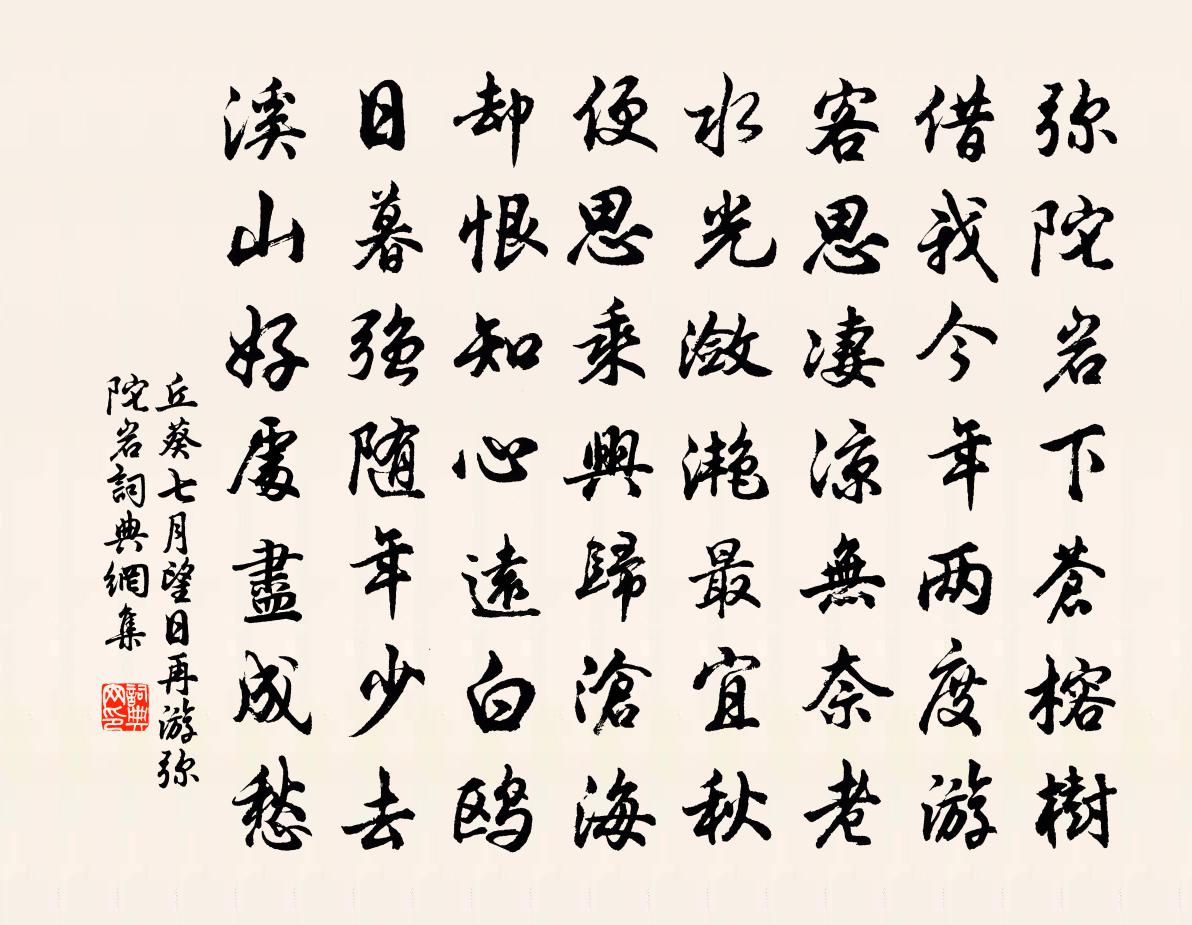 弥陀岩下蒼榕樹
借我今年两度游
客思凄涼無奈老
水光潋滟最宜秋
便思乘興歸滄海
却恨知心遠白鸥
日暮强随年少去
溪山好處盡成愁
丘葵七月望日再游弥
陀岩詞典網集
詞典
网印